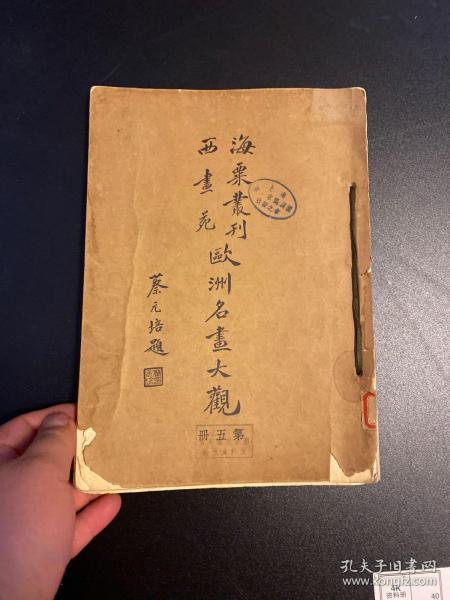 海粟叢刊
西畫苑
歐洲名畫大觀
蔡元培題
第五冊
4K
资料册
40
孔夫子旧书网